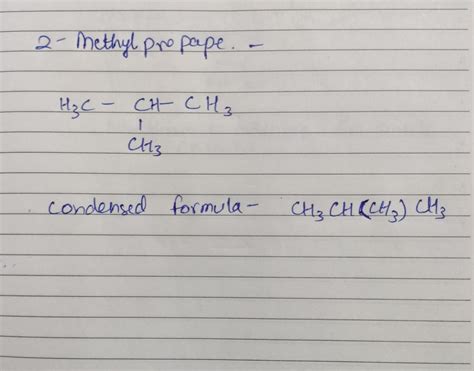 2 - Methyl propape. -
H₃C - CH - CH₃
|
CH₃
Condensed formula - CH₃ CH (CH₃) CH₃